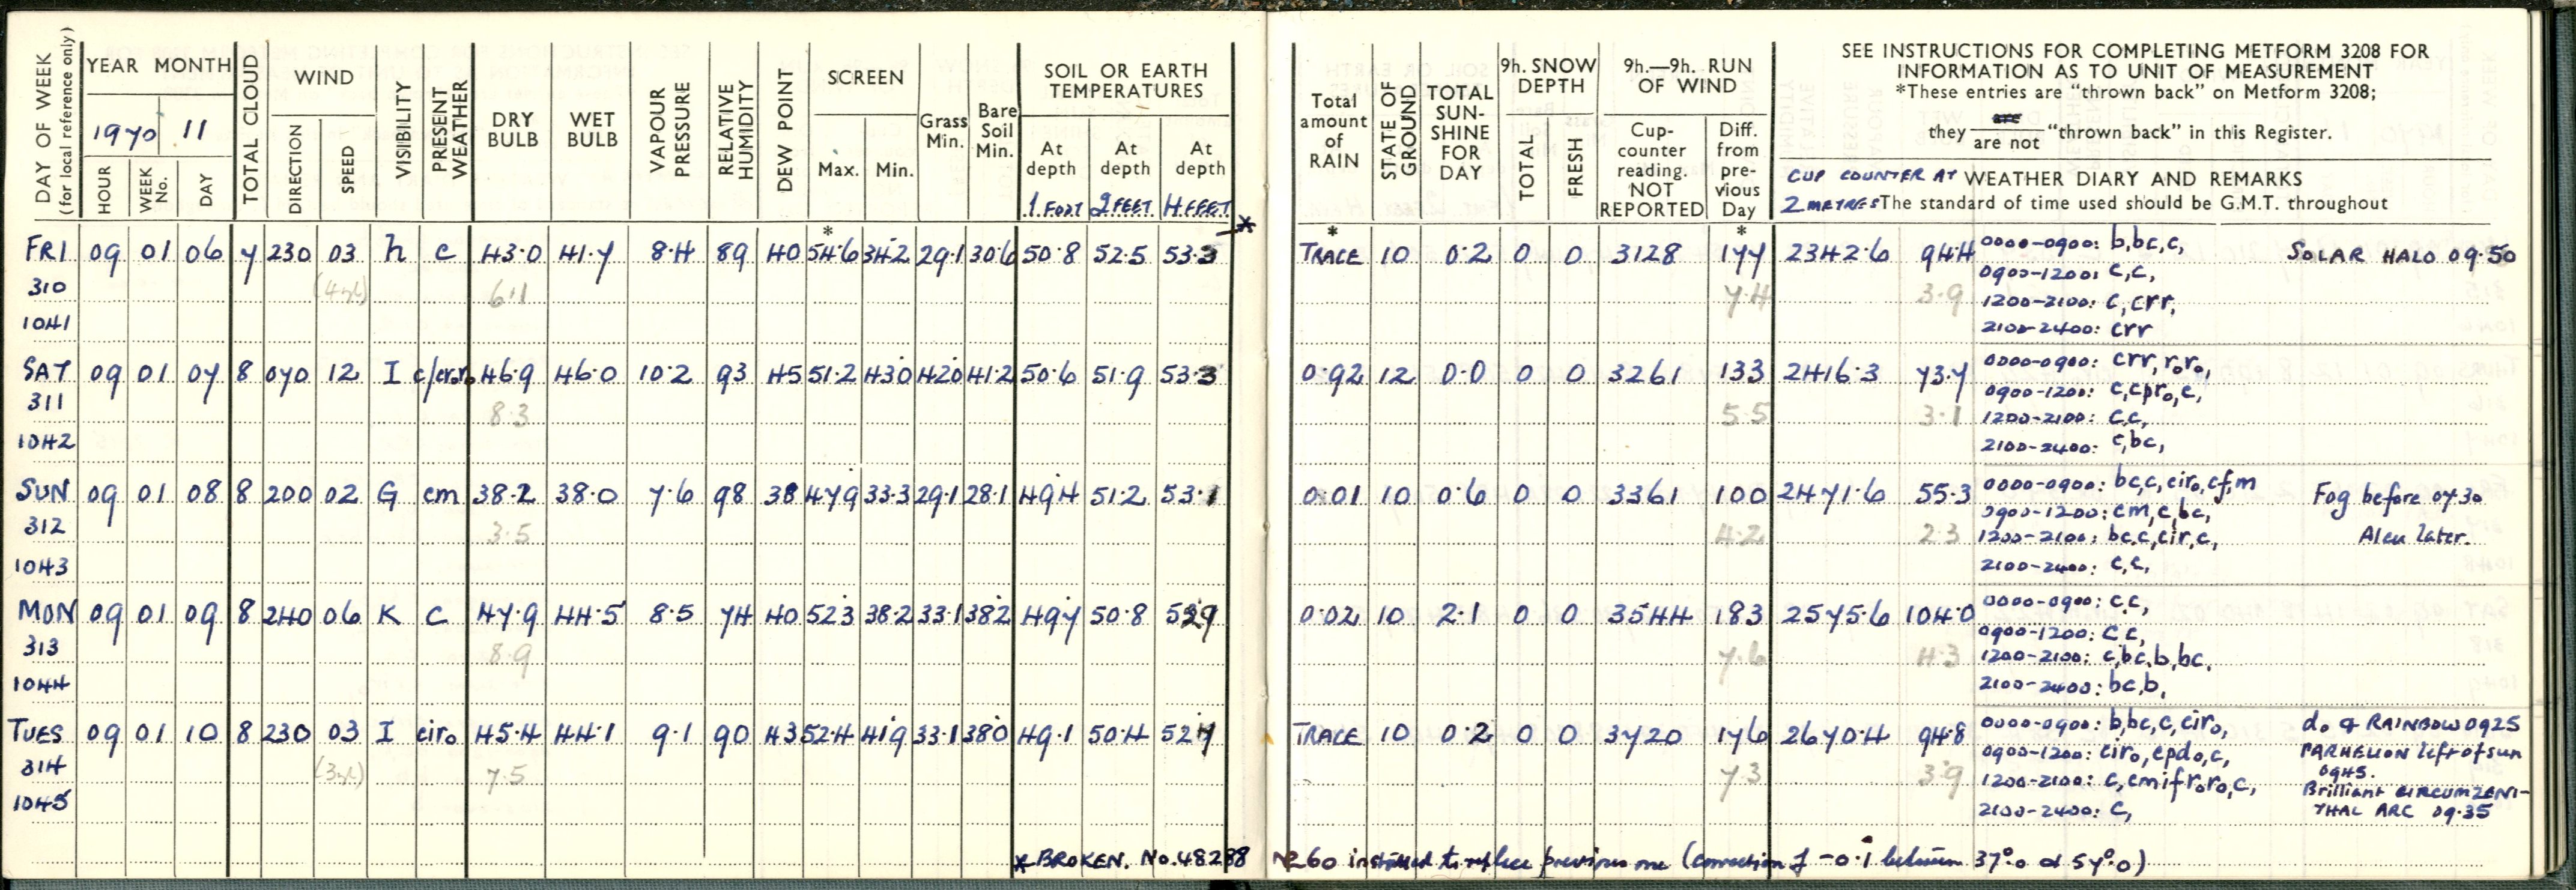 DAY OF WEEK
(for local reference only)
YEAR MONTH
1970 11
HOUR WEEK No. DAY
TOTAL CLOUD
WIND
DIRECTION SPEED
VISIBILITY
PRESENT WEATHER
DRY BULB
WET BULB
VAPOUR PRESSURE
RELATIVE HUMIDITY
DEW POINT
SCREEN
Max. Min.
Grass Min.
Bare Soil Min.
SOIL OR EARTH
TEMPERATURES
At depth At depth At depth
1 FOOT 2 FEET 4 FEET
*
Total amount of RAIN
*
STATE OF GROUND
TOTAL SUN-SHINE FOR DAY
9h. SNOW DEPTH
TOTAL FRESH
9h.—9h. RUN OF WIND
Cup-counter reading. NOT REPORTED
Diff. from pre-vious Day
*
SEE INSTRUCTIONS FOR COMPLETING METFORM 3208 FOR
INFORMATION AS TO UNIT OF MEASUREMENT
*These entries are "thrown back" on Metform 3208;
they are / are not "thrown back" in this Register.
CUP COUNTER AT 2 METRES
WEATHER DIARY AND REMARKS
The standard of time used should be G.M.T. throughout
FRI 09 01 06 7 230 03 h c 43.0 41.7 8.4 89 40 54.6 34.2 29.1 30.6 50.8 52.5 53.3 TRACE 10 0.2 0 0 3128 177 2342.6 94.4 0000-0900: b,bc,c, SOLAR HALO 09.50
0900-1200: c,c,
310 (4yl) 6.1 7.4 3.9 1200-2100: c,crr,
1041 2100-2400: crr
SAT 09 01 07 8 070 12 I c/crₒrₒ 46.9 46.0 10.2 93 45 51.2 43.0 42.0 41.2 50.6 51.9 53.3 0.92 12 0.0 0 0 3261 133 2416.3 73.7 0000-0900: crr, rₒrₒ,
0900-1200: c,cprₒ,c,
311 8.3 5.5 3.1 1200-2100: c,c,
1042 2100-2400: c,bc,
SUN 09 01 08 8 200 02 G cm 38.2 38.0 7.6 98 38 47.9 33.3 29.1 28.1 49.4 51.2 53.1 0.01 10 0.6 0 0 3361 100 2471.6 55.3 0000-0900: bc,c,cirₒ,cf,m Fog before 07.30
0900-1200: cm,c,bc,
312 3.5 4.2 2.3 1200-2100: bc,c,cir,c, Also later.
1043 2100-2400: c,c,
MON 09 01 09 8 240 06 K C 47.9 44.5 8.5 74 40 52.3 38.2 33.1 38.2 49.7 50.8 52.9 0.02 10 2.1 0 0 3544 183 2575.6 104.0 0000-0900: c,c,
0900-1200: c,c,
313 8.9 7.6 4.3 1200-2100: c,bc,b,bc,
1044 2100-2400: bc,b,
TUES 09 01 10 8 230 03 I cirₒ 45.4 44.1 9.1 90 43 52.4 41.9 33.1 38.0 49.1 50.4 52.7 TRACE 10 0.2 0 0 3720 176 2670.4 94.8 0000-0900: b,bc,c,cirₒ, dₒ & RAINBOW 0925
0900-1200: cirₒ,cpdₒ,c, PARHELION left of sun
0945.
314 (3yl) 7.5 7.3 3.9 1200-2100: c,cmifrₒrₒ,c, Brilliant CIRCUMZENI-
1045 2100-2400: C, THAL ARC 09.35
* BROKEN. No. 48288 No 60 installed to replace previous one (correction of -0.1 between 37°.0 & 57°.0)